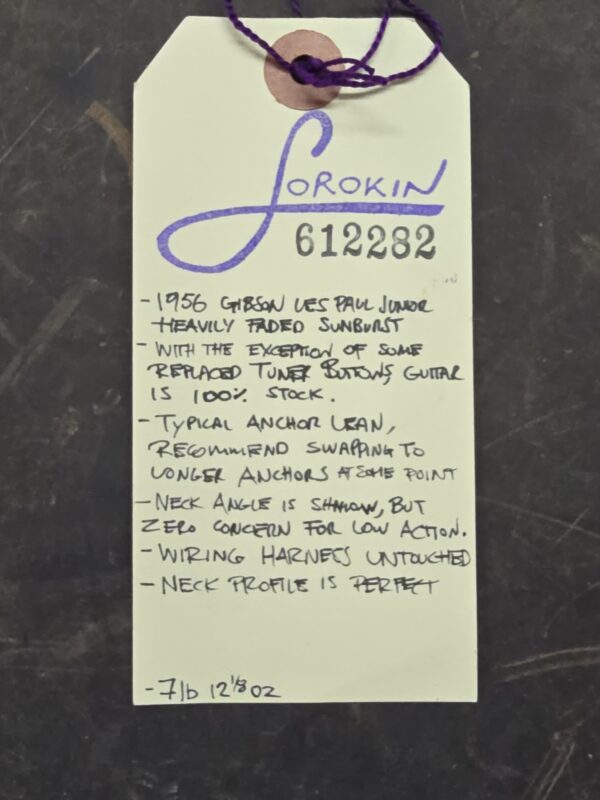 SOROKIN
612282
- 1956 GIBSON LES PAUL JUNIOR
HEAVILY FADED SUNBURST
- WITH THE EXCEPTION OF SOME
REPLACED TUNER BUTTONS, GUITAR
IS 100% STOCK.
- TYPICAL ANCHOR LEAN,
RECOMMEND SWAPPING TO
LONGER ANCHORS AT SOME POINT
- NECK ANGLE IS SHALLOW, BUT
ZERO CONCERN FOR LOW ACTION.
- WIRING HARNESS UNTOUCHED
- NECK PROFILE IS PERFECT
- 7lb 12 1/8 oz